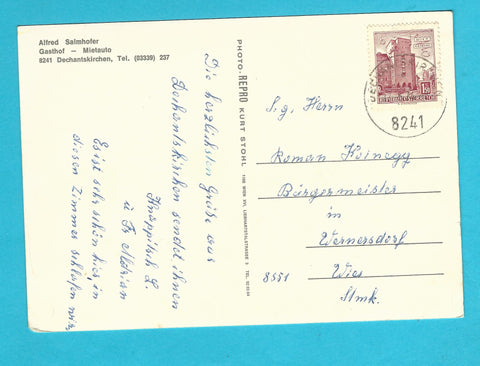 Alfred Salmhofer
Gasthof – Mietauto
8241 Dechantskirchen, Tel. (03339) 237
Die herzlichsten Grüße aus
Dechantskirchen sendet ihnen
L.
u Fr
Es ist sehr schön hier, in
diesen Zimmer schlafen wir
PHOTO-REPRO KURT STOHL
1150 WIEN XV,
REPUBLIK ÖSTERREICH
8241
S.g. Herrn
Roman Koinegg
Bürgermeister
in
Wernersdorf
8551 Wies
Stmk.